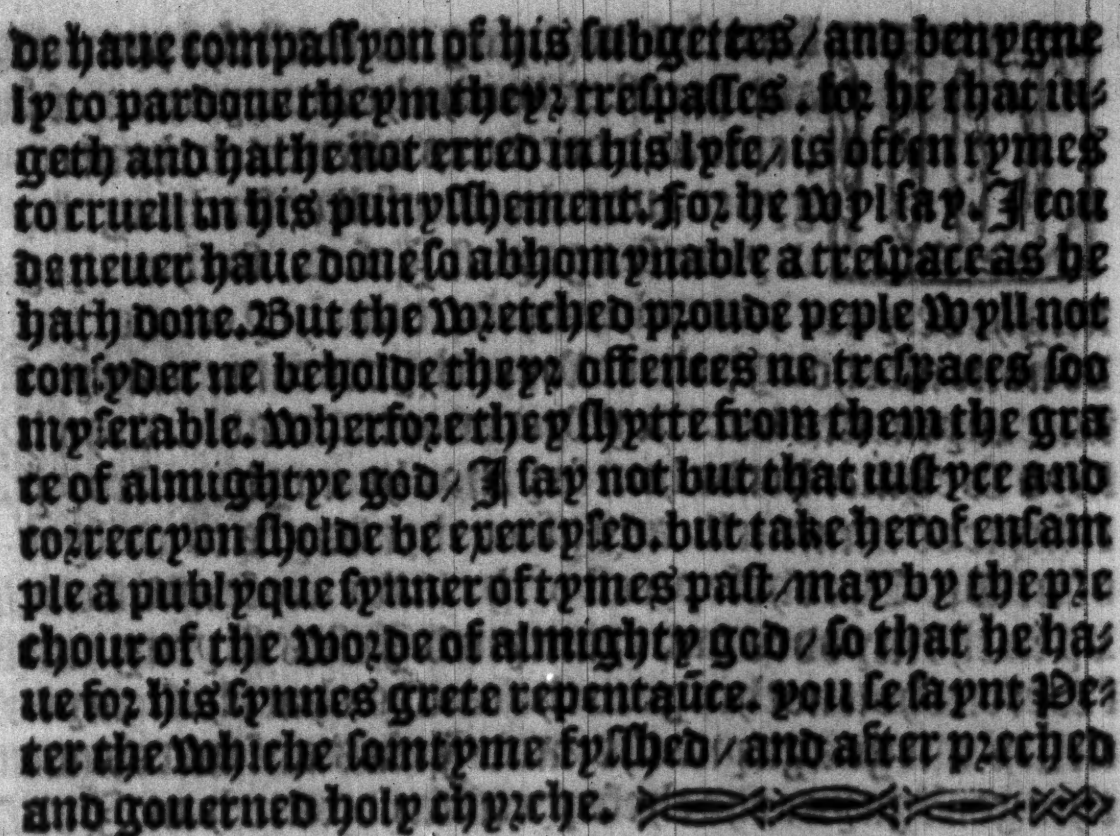 de haue compassyon of his subgettes/ and benygne
ly to pardone theym theyr trespasses. for he that iu-
geth and hathe not erred in his lyfe/ is often tymes
to cruell in his punysshement. For he wyl say. I cou
de neuer haue done so abhomynable a trespace as he
hath done. But the wretched proude peple wyll not
consyder ne beholde theyr offences ne trespaces soo
myserable. Wherfore they shytte from them the gra
ce of almightye god/ I say not but that iustyce and
correccyon sholde be exercysed. but take herof ensam
ple a publyque synner of tymes past/ may by the pre
chour of the worde of almighty god/ so that he ha-
ue for his synnes grete repentaūce. you se saynt Pe-
ter the whiche somtyme fysshed/ and after preched
and gouerned holy chyrche.